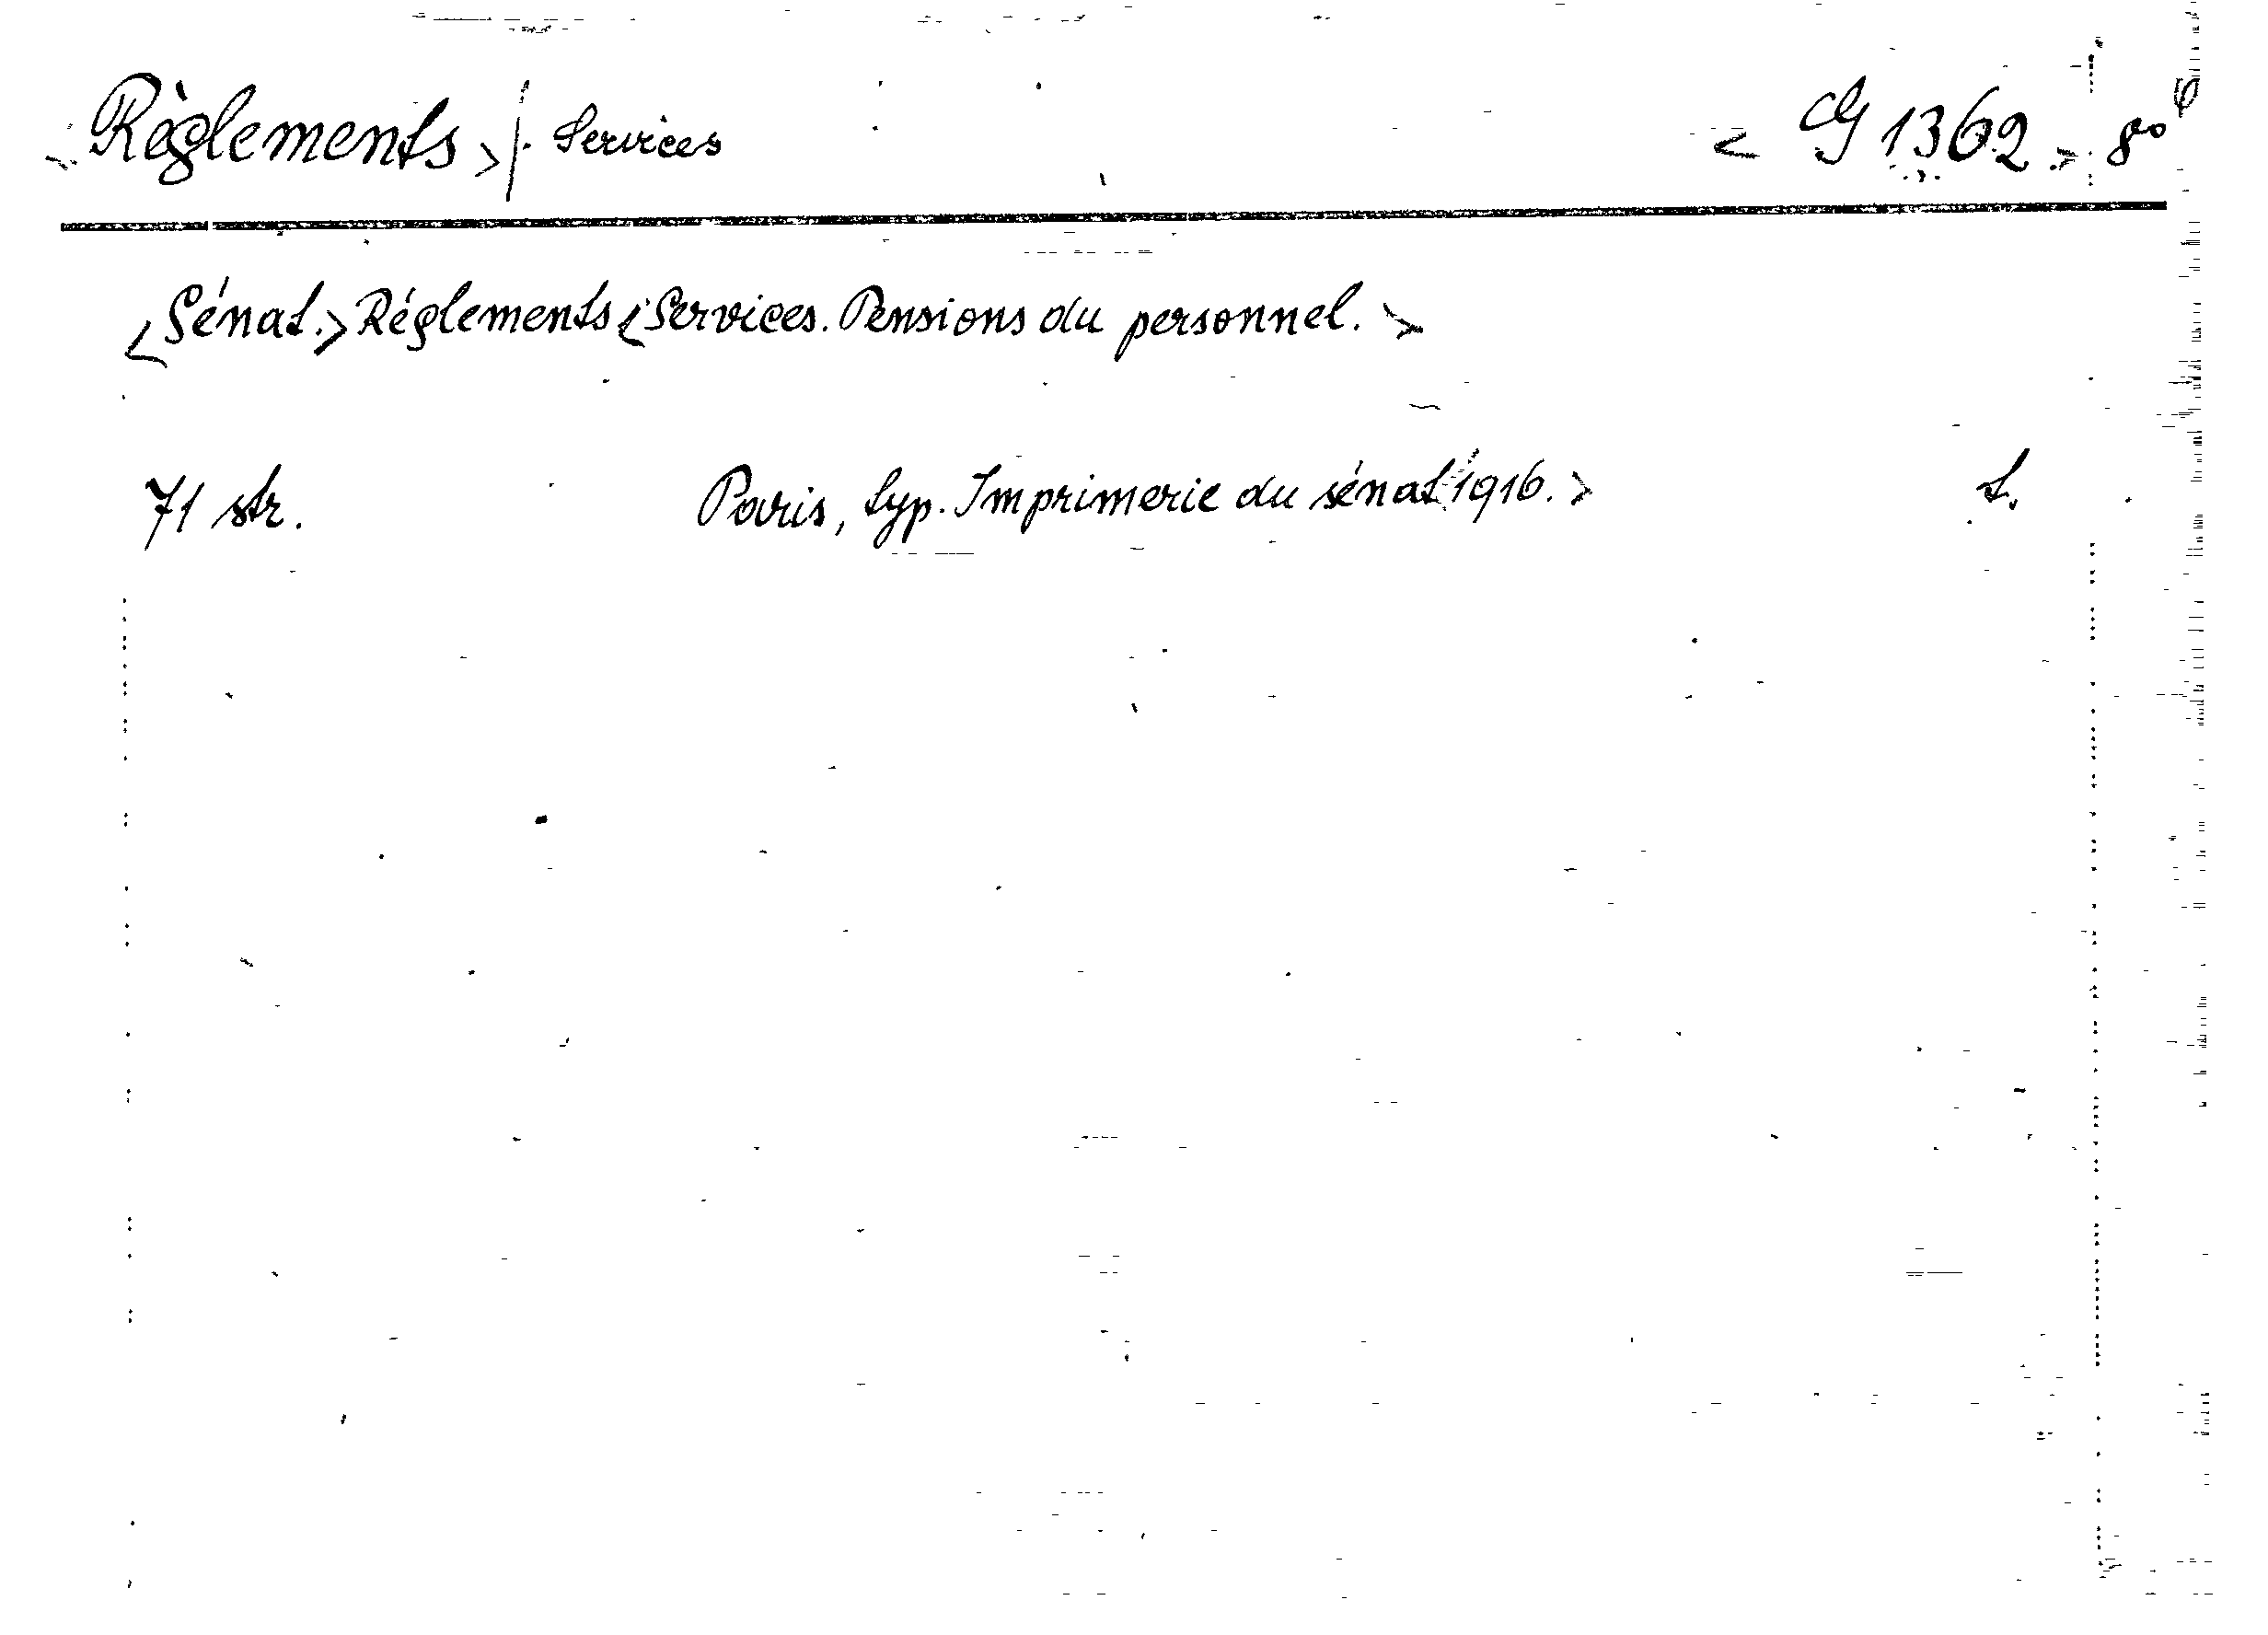 <Règlements>|. Services <CG 1362> 8°
<Sénat.> Réglements <Services. Pensions du personnel.>
71 str. Paris, typ. Imprimerie du sénat 1916.> t.